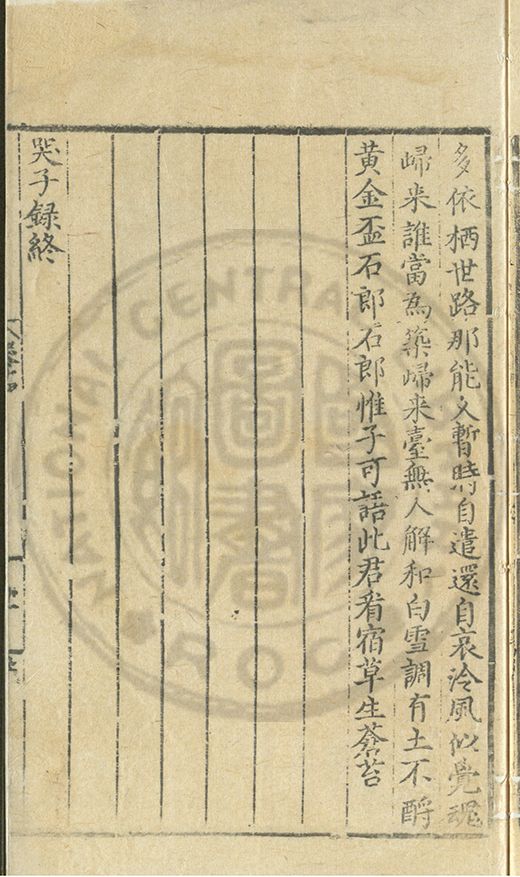 多依栖世路那能久暫時自遣還自哀泠風似覺魂
歸来誰當為築歸来臺無人解和白雪調有土不酹
黃金盃石郎石郎惟子可話此君看宿草生蒼苔
哭子録終